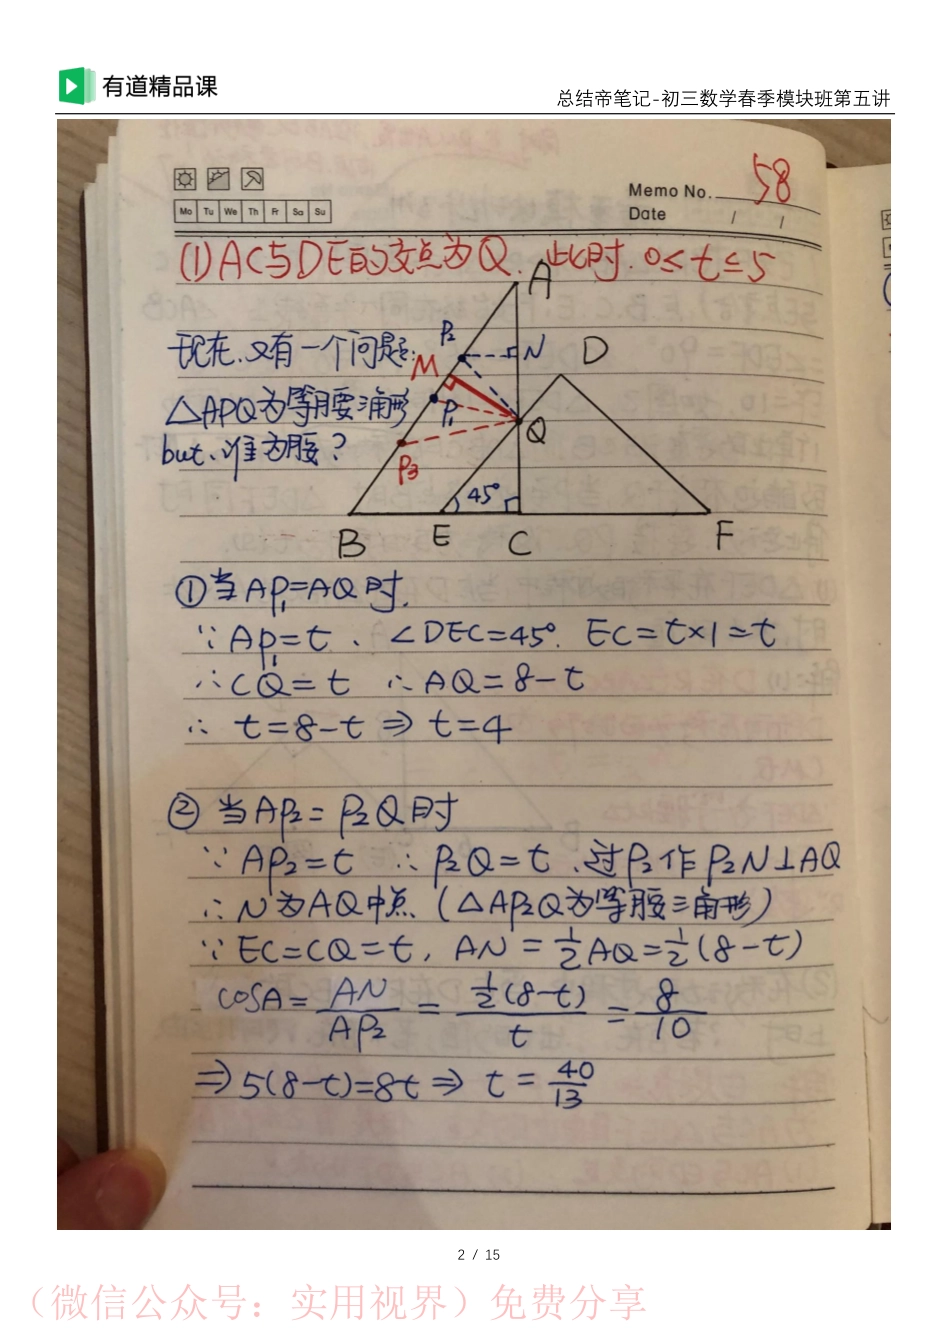 有道精品课
总结帝笔记-初三数学春季模块班第五讲
Memo No. 58
Mo Tu We Th Fr Sa Su
Date / /
(1) AC与DE的交点为Q. 此时. 0≤t≤5
现在.又有一个问题:
△APQ为等腰三角形
but、谁为腰?
A
P₂
N
D
M
P₁
Q
P₃
45°
B
E
C
F
①当AP₁=AQ时.
∵AP₁=t、∠DEC=45°. EC=t×1=t
∴CQ=t ∴AQ=8-t
∴ t=8-t ⇒ t=4
② 当AP₂=P₂Q时
∵AP₂=t ∴P₂Q=t、过P₂作P₂N⊥AQ
∴N为AQ中点 (△AP₂Q为等腰三角形)
∵EC=CQ=t, AN=1/2AQ=1/2(8-t)
cosA=AN/AP₂=1/2(8-t)/t=8/10
⇒5(8-t)=8t⇒ t=40/13
2 / 15
（微信公众号：实用视界）免费分享